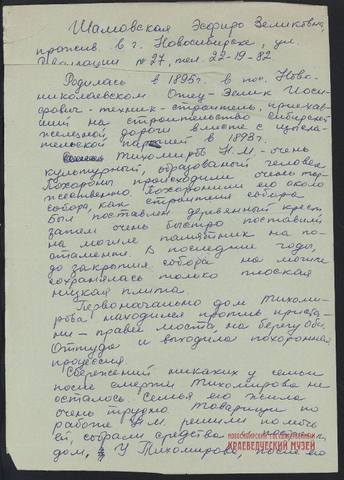 Шамовская Эсфирь Зеликовна,
прожив. в г. Новосибирске, ул.
№ 27, тел. 22-19-82
Родилась в 1895 г. в пос. Ново-
николаевском Отец - Зелик Иоси-
фович - техник - строитель, приехав-
ший на строительство сибирской
железной дороги вместе с изыска-
тельской партией в 1893 г.
Тихомиров Н.М. - очень
культурный, образованый человек
Похороны происходили очень тор-
жественно. Похоронили его около
собора, как строителя собора
Был поставлен деревянный крест
затем очень быстро поставили
на могиле памятник на по-
стаменте. В последние годы,
до закрытия собора на могиле
сохранялась только плоская
низкая плита.
Первоначально дом Тихоми-
рова находился против приста-
ни - правее моста, на берегу Оби.
Оттуда и выходила похоронная
процессия
Сбережений никаких у семьи
после смерти Тихомирова не
осталось. Семья его жила
очень трудно. Товарищи по
работе Н.М. решили помочь
ей, собрали средства и построили
дом, У Тихомирова, после его
НОВОСИБИРСКИЙ ГОСУДАРСТВЕННЫЙ
КРАЕВЕДЧЕСКИЙ МУЗЕЙ